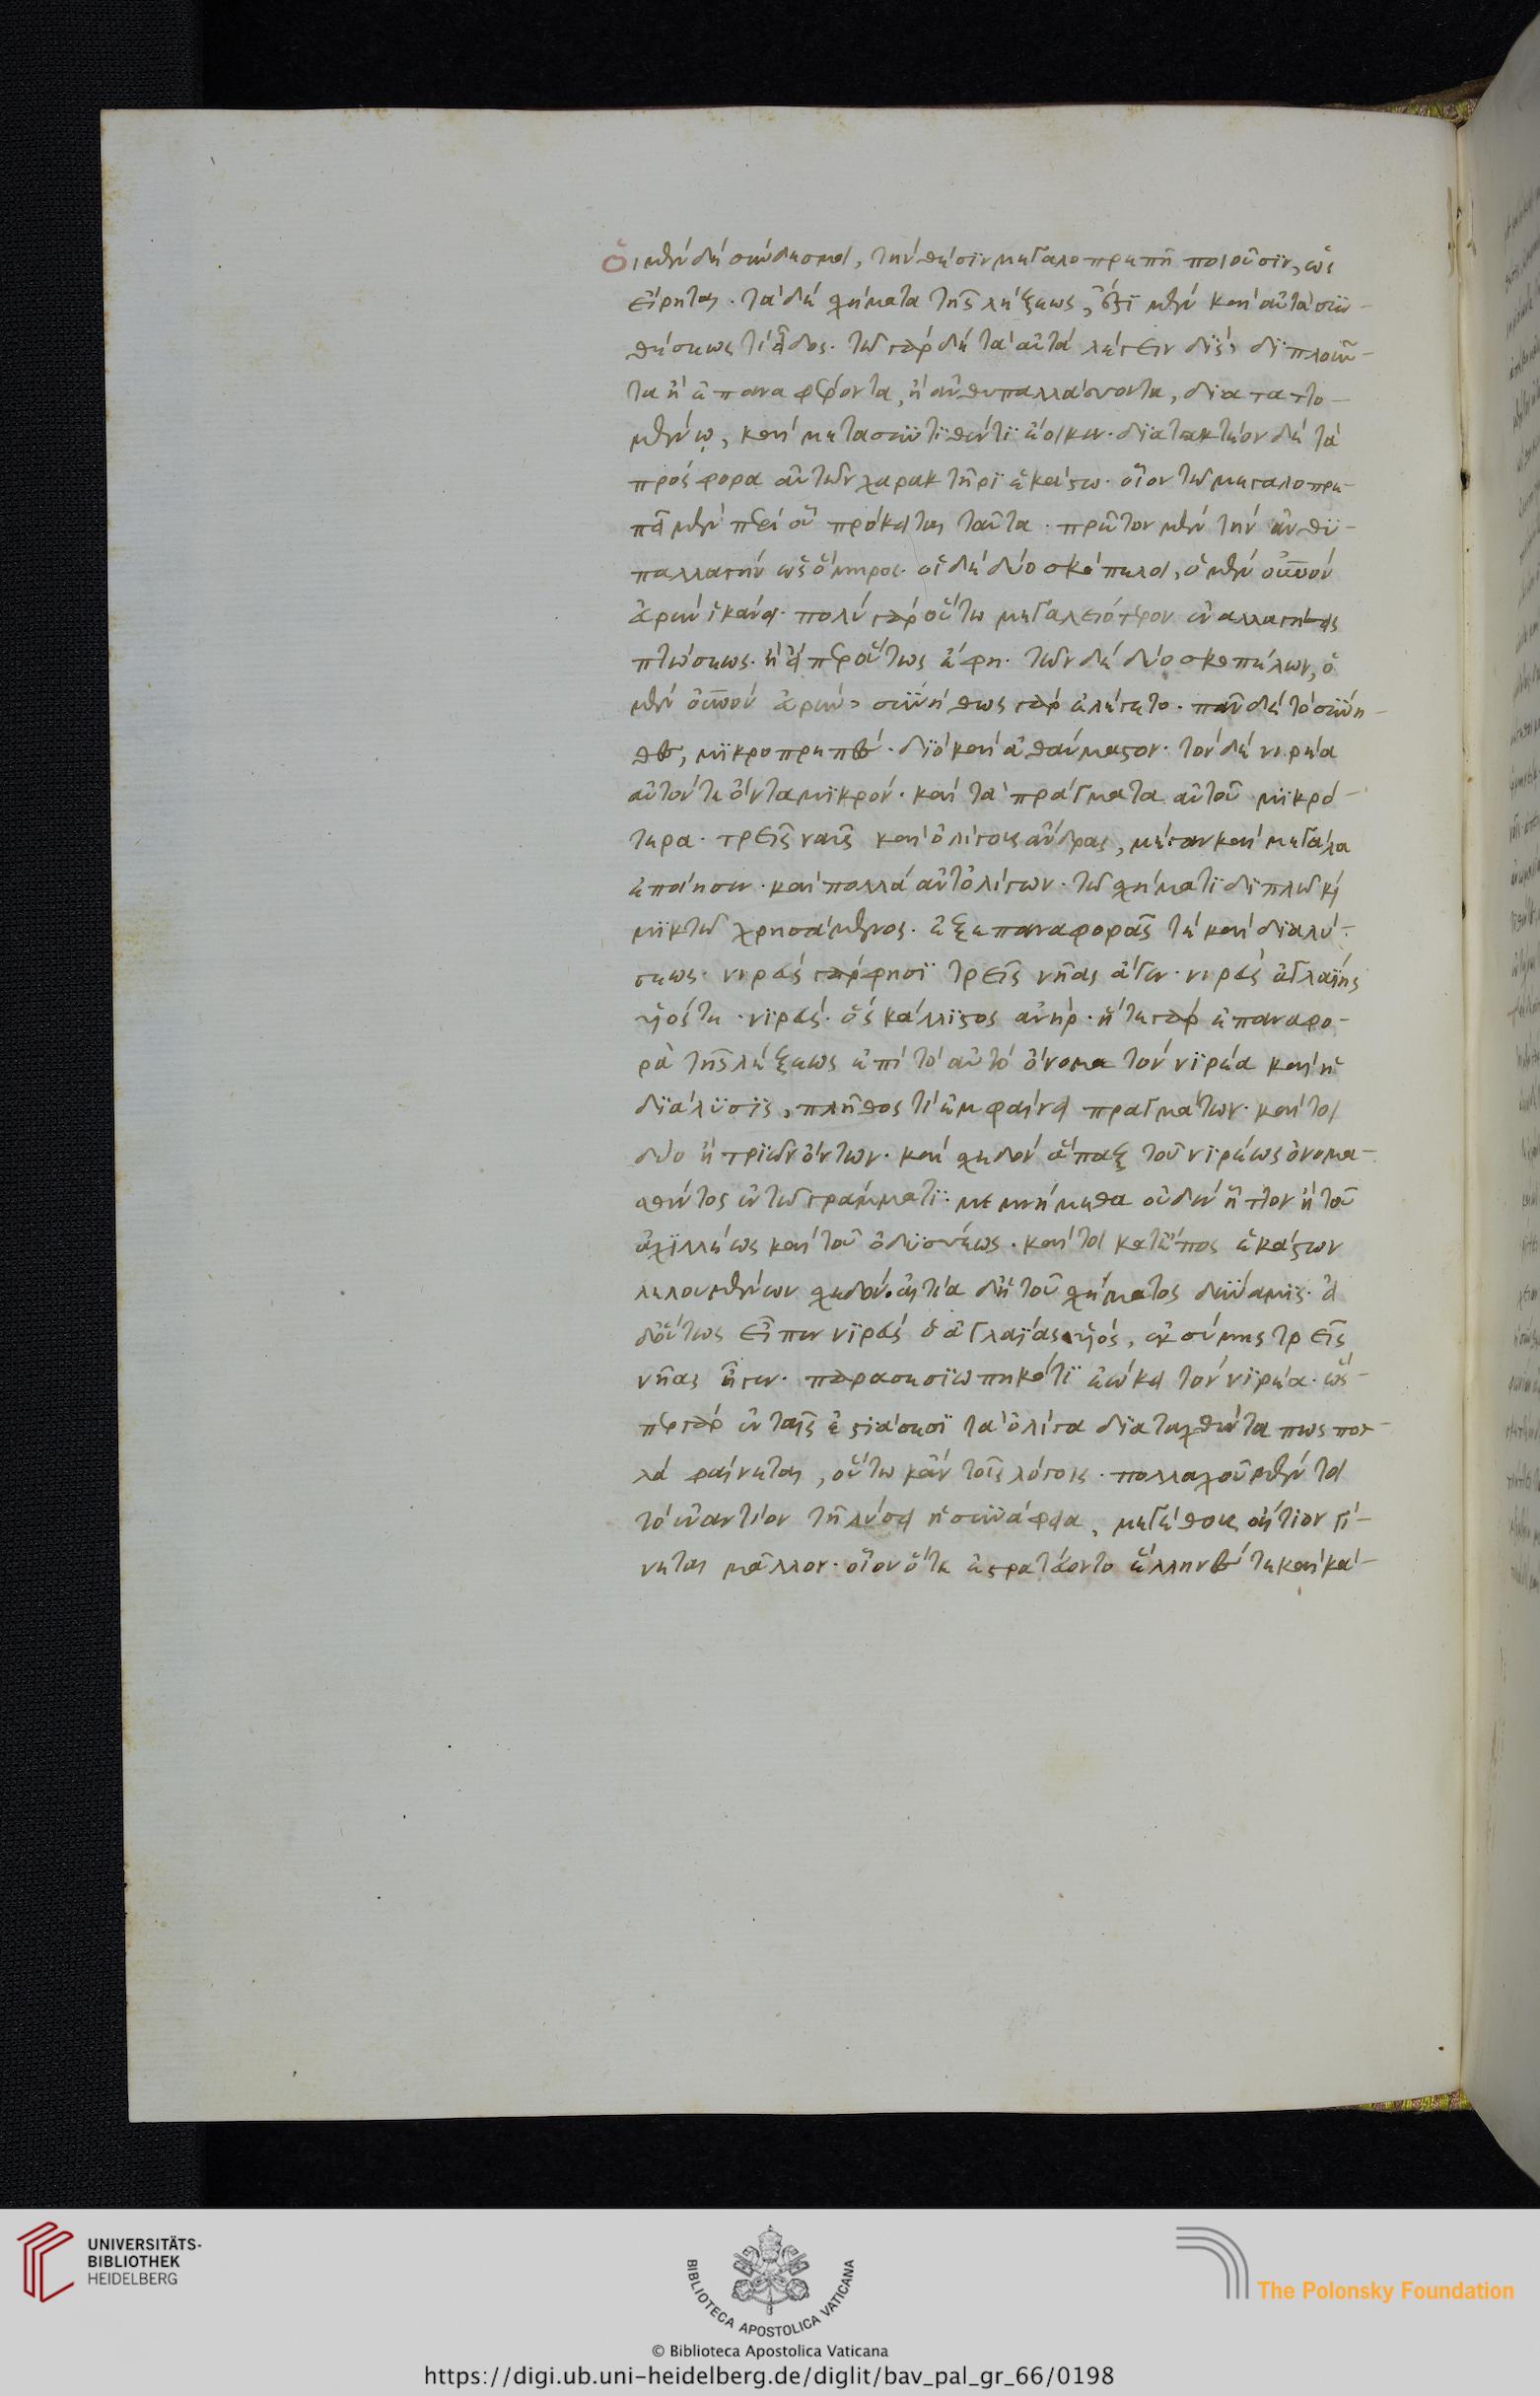 Οἱ μὲν δὴ σύνδεσμοι, τὴν θέσιν μεγαλοπρεπῆ ποιοῦσιν, ὡς
εἴρηται. τὰ δὲ σχήματα τῆς λέξεως, ἔστι μὲν καὶ αὐτὰ συν-
θέσεώς τι εἶδος. τῷ γὰρ δὴ τὰ αὐτὰ λέγειν δὶς, διπλοῦν-
τα ἢ ἐπαναφέροντα, ἢ ἀνθυπαλλάσσοντα, διαταττο-
μένῳ, καὶ μετασυντιθέντι ἔοικεν. διατακτέον δὲ τὰ
πρόσφορα αὐτῶν χαρακτῆρι ἑκάστῳ. οἷον τῷ μεγαλοπρε-
πεῖ μὲν περὶ οὗ πρόκειται ταῦτα. πρῶτον μὲν τὴν ἀνθυ-
παλλαγὴν ὡς ὅμηρος. οἱ δὲ δύο σκόπελοι, ὁ μὲν οὐρανὸν
εὐρὺν ἱκάνει. πολὺ γὰρ οὕτω μεγαλειότερον ἐναλλαγείσης
πτώσεως. ἢ εἴπερ οὕτως ἔφη. τῶν δὲ δύο σκοπέλων, ὁ
μὲν οὐρανὸν εὐρύν, συνήθως γὰρ ἐλέγετο. πᾶν δὲ τὸ σύνη-
θες, μικροπρεπές. διὸ καὶ ἀθαύμαστον. τὸν δὲ νιρέα
αὐτόν τε ὄντα μικρὸν. καὶ τὰ πράγματα αὐτοῦ μικρό-
τερα. τρεῖς ναῦς καὶ ὀλίγους ἄνδρας, μέγαν καὶ μεγάλα
ἐποίησεν. καὶ πολλὰ ἀντ' ὀλίγων. τῷ σχήματι διπλῷ καὶ
μικτῷ χρησάμενος. ἐξ ἐπαναφορᾶς τὲ καὶ διαλύ-
σεως. νιρεὺς γάρ φησι τρεῖς νῆας ἄγεν. νιρεὺς ἀγλαΐης
υἱός τε. νιρεὺς. ὃς κάλλιστος ἀνήρ. ἥ τε γὰρ ἐπαναφο-
ρὰ τῆς λέξεως ἐπὶ τὸ αὐτὸ ὄνομα τὸν νιρέα καὶ ἡ
διάλυσις, πλῆθός τι ἐμφαίνει πραγμάτων. καίτοι
δύο ἢ τριῶν ὄντων. καὶ σχεδὸν ἅπαξ τοῦ νιρέως ὀνομα-
σθέντος ἐν τῷ γράμματι. μεμνήμεθα οὐδὲν ἧττον ἢ τοῦ
ἀχιλλέως καὶ τοῦ ὀδυσσέως. καίτοι κατ' ἔπος ἕκαστον
λαλουμένων σχεδόν. αἰτία δὴ τοῦ σχήματος δύναμις. εἰ
δ' οὕτως εἶπεν νιρεὺς ὁ ἀγλαΐας υἱός, ἐκ σύμης τρεῖς
νῆας ἦγεν. παρασεσιωπηκότι ἐῴκει τὸν νιρέα. ὥσ-
περ γὰρ ἐν ταῖς ἑστιάσεσι τὰ ὀλίγα διαταχθέντα πως πολ-
λὰ φαίνεται, οὕτω κἂν τοῖς λόγοις. πολλαχοῦ μέντοι
τὸ ἐναντίον τῇ λύσει ἡ συνάφεια, μεγέθους αἴτιον γί-
νεται μᾶλλον. οἷον ὅτι ἐστρατεύοντο ἕλληνές τε καὶ κᾶ-
UNIVERSITÄTS-
BIBLIOTHEK
HEIDELBERG
BIBLIOTECA APOSTOLICA VATICANA
The Polonsky Foundation
© Biblioteca Apostolica Vaticana
https://digi.ub.uni-heidelberg.de/diglit/bav_pal_gr_66/0198